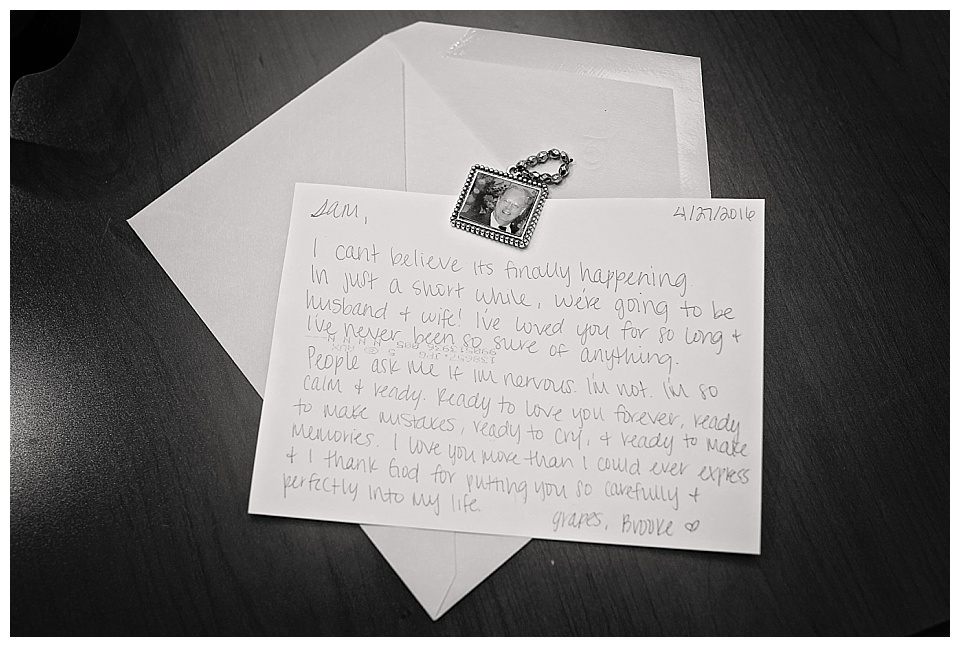 Sam,
4/27/2016
I cant believe its finally happening
In just a short while, we're going to be
husband + wife! I've loved you for so long +
I've never been so sure of anything.
People ask me if im nervous. I'm not. I'm so
calm + ready. Ready to love you forever, ready
to make mistakes, ready to cry, + ready to make
memories. I love you more than I could ever express
+ I thank God for putting you so carefully +
perfectly into my life.
grapes, Brooke ♡